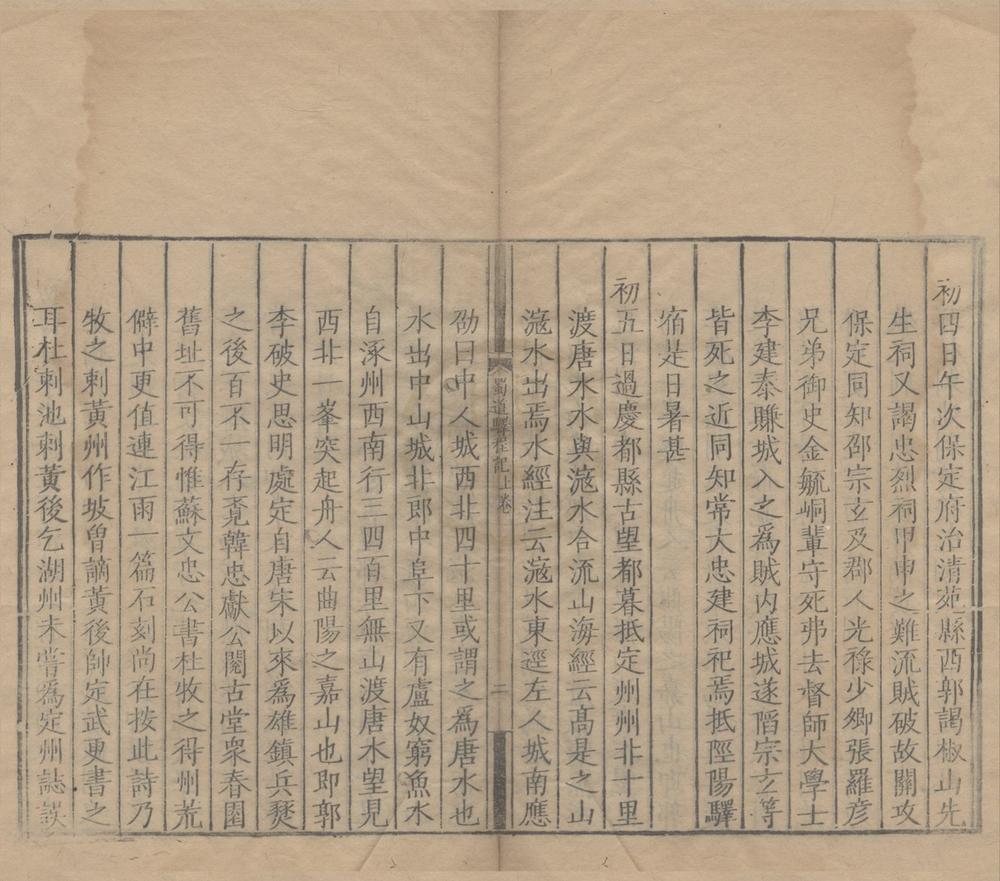 初四日午次保定府治清苑縣西郭謁椒山先
生祠又謁忠烈祠甲申之難流賊破故關攻
保定同知邵宗玄及郡人光祿少卿張羅彦
兄弟御史金毓峒輩守死弗去督師大學士
李建泰賺城入之爲賊内應城遂䧟宗玄等
皆死之近同知常大忠建祠祀焉抵陘陽驛
宿是日暑甚
初五日過慶都縣古望都暮抵定州州北十里
渡唐水水與滱水合流山海經云高是之山
滱水出焉水經注云滱水東逕左人城南應
蜀道驛程記 上卷 二
劭曰中人城西北四十里或謂之爲唐水也
水出中山城北郎中阜下又有盧奴窮魚水
自涿州西南行三四百里無山渡唐水望見
西北一峯突起舟人云曲陽之嘉山也即郭
李破史思明處定自唐宋以來爲雄鎮兵燹
之後百不一存覔韓忠獻公閱古堂衆春園
舊址不可得惟蘇文忠公書杜牧之得州荒
僻中更值連江雨一篇石刻尚在按此詩乃
牧之刺黃州作坡曽謫黃後帥定武更書之
耳杜刺池刺黃後乞湖州未嘗爲定州誌誤